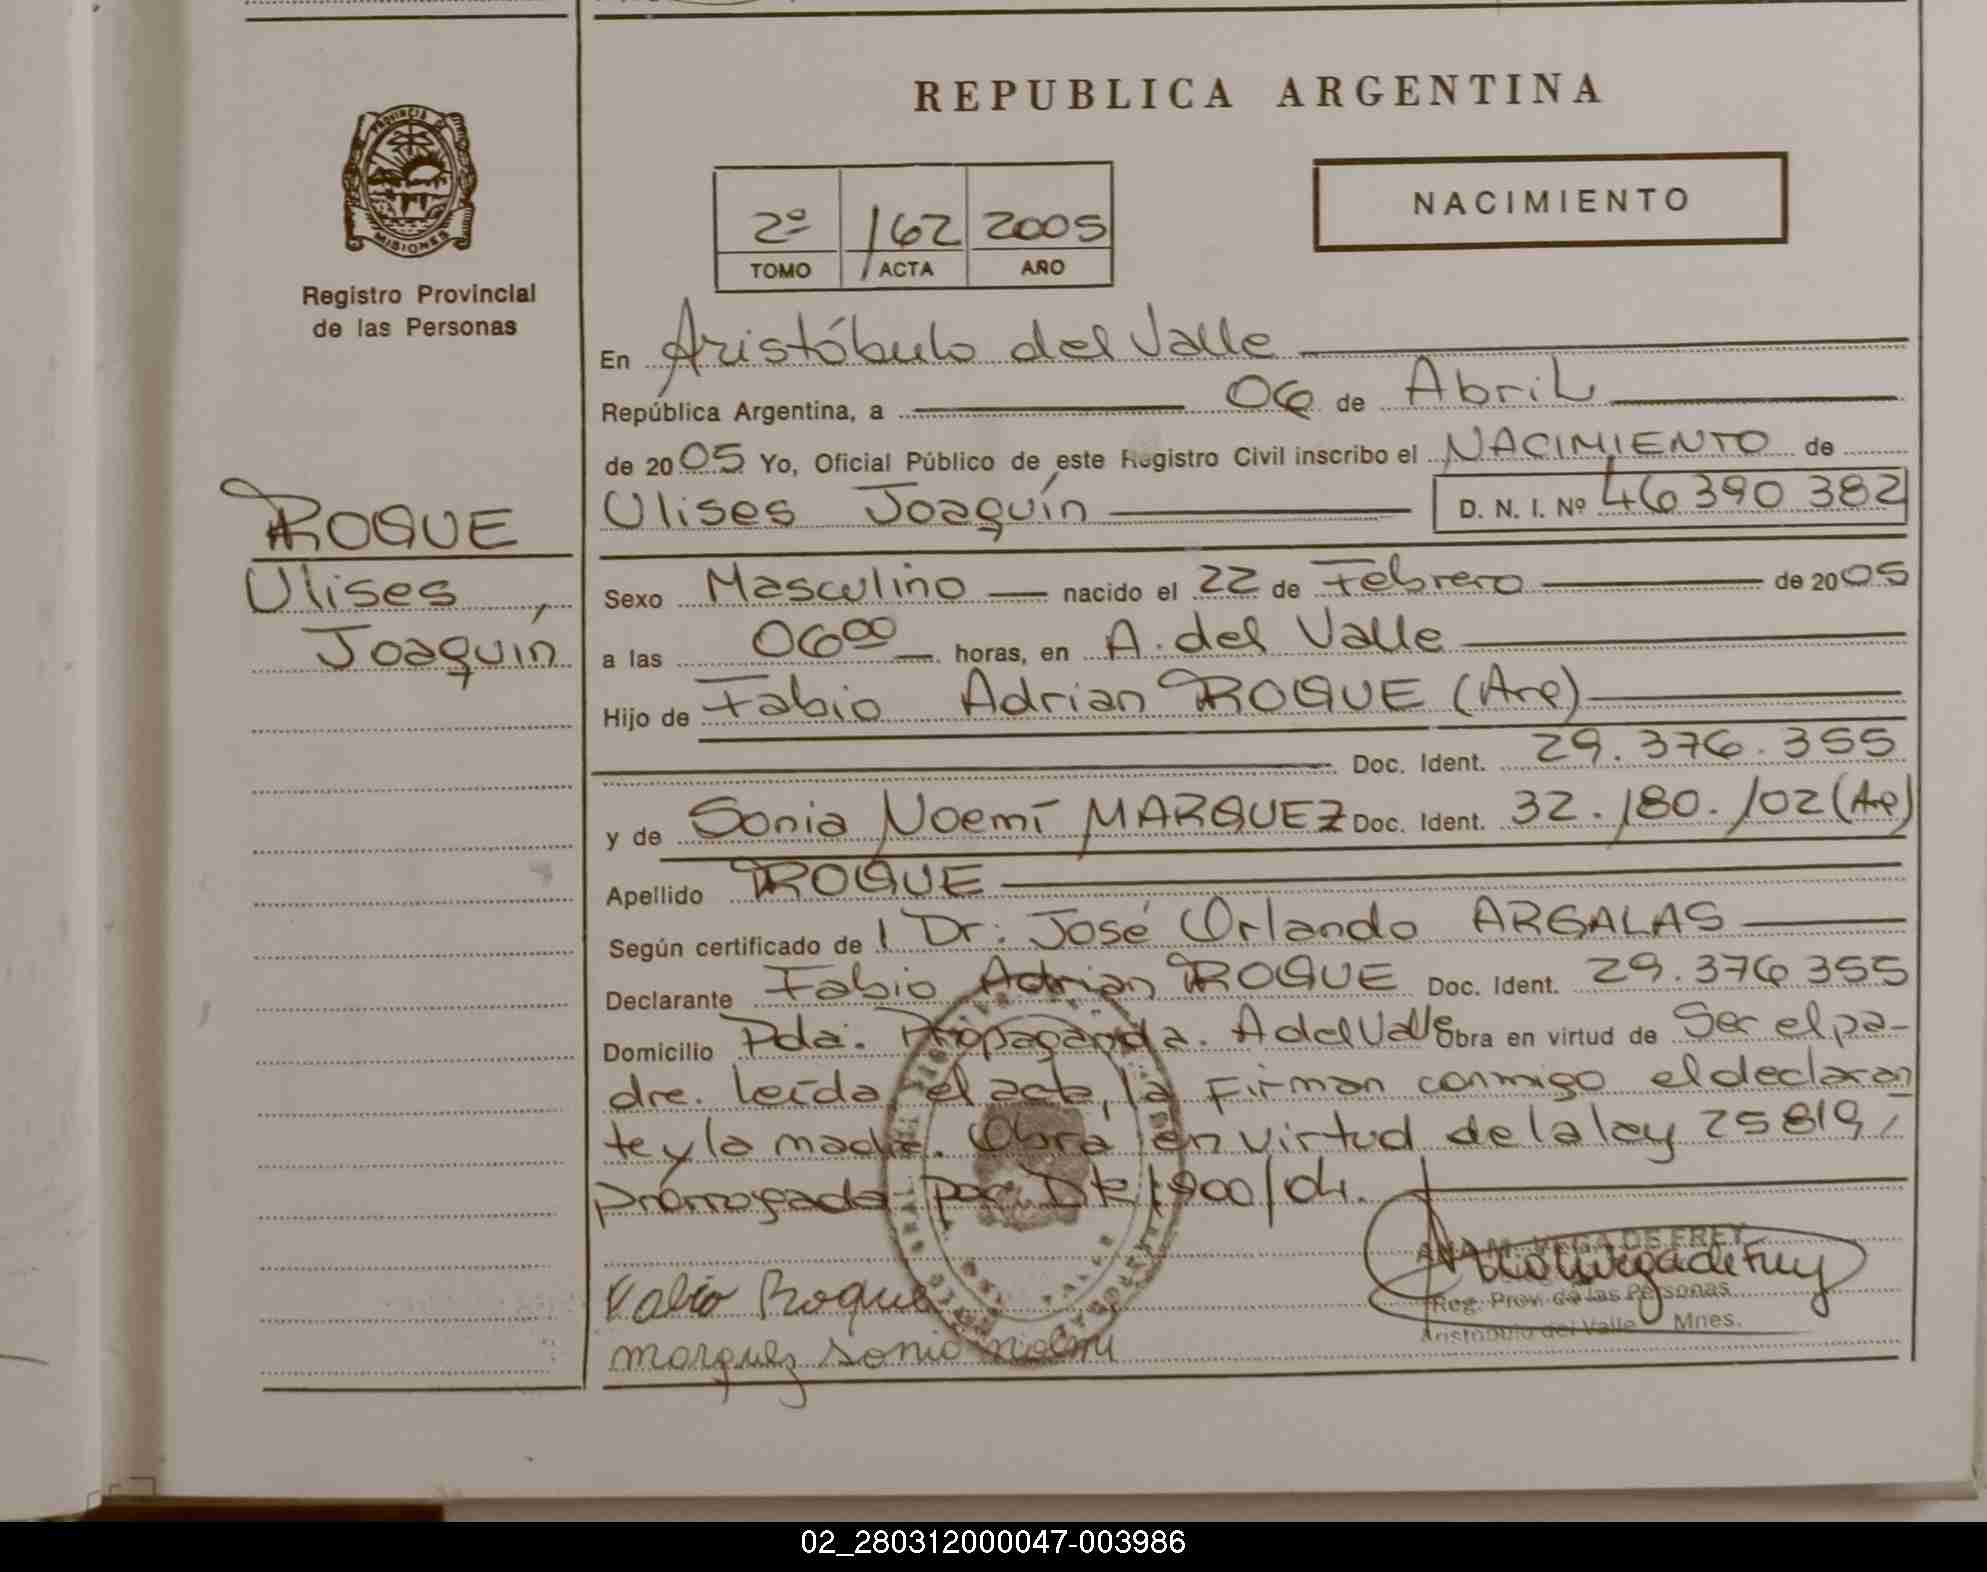 REPUBLICA ARGENTINA
PROVINCIA DE
MISIONES
Registro Provincial
de las Personas
2º 162 2005
TOMO ACTA AÑO
NACIMIENTO
ROQUE
Ulises
Joaquín
En Aristóbulo del Valle
República Argentina, a 06 de Abril
de 2005 Yo, Oficial Público de este Registro Civil inscribo el NACIMIENTO de
Ulises Joaquín D. N. I. Nº 46 390 382
Sexo Masculino nacido el 22 de Febrero de 2005
a las 06 00 horas, en A. del Valle
Hijo de Fabio Adrian ROQUE (Arg)
Doc. Ident. 29.376.355
y de Sonia Noemí MARQUEZ Doc. Ident. 32.180.102 (Arg)
Apellido ROQUE
Según certificado de l Dr: José Orlando ARGALAS
Declarante Fabio Adrian ROQUE Doc. Ident. 29.376 355
Domicilio Pda: Propaganda. A del Valle Obra en virtud de Ser el pa-
dre. Leída el acta, la Firman conmigo el declaran
te y la madre. Obra en virtud de la ley 25819/
prorrogada por Dto 1900/04.
ANA M. VEGA DE FREY
Reg. Prov. de las Personas
Aristóbulo del Valle Mnes.
Fabio Roque
Marquez Sonia Noemi
02_280312000047-003986